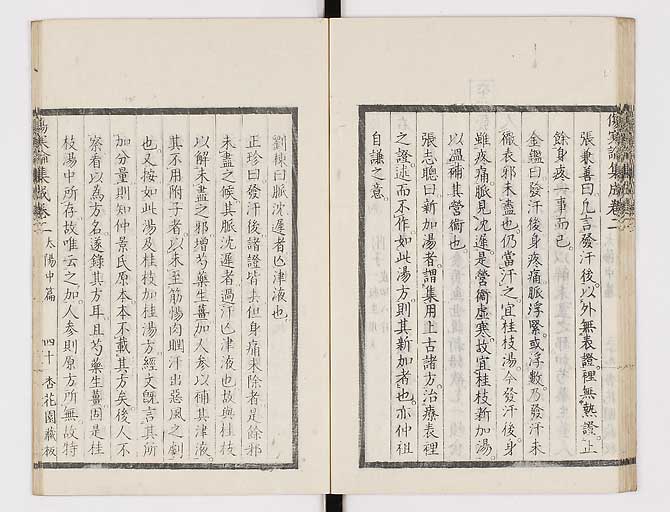 傷寒論集成卷二
張兼善曰凡言發汗後以外無表證裡無熱證止
餘身疼一事而已
金鑑曰發汗後身疼痛脈浮緊或浮數乃發汗未
徹表邪未盡也仍當汗之宜桂枝湯今發汗後身
雖疼痛脈見沈遲是營衞虛寒故宜桂枝新加湯
以溫補其營衞也
張志聰曰新加湯者謂集用上古諸方治療表裡
之證述而不作如此湯方則其新加者也亦仲祖
自謙之意
劉棟曰脈沈遲者亾津液也
正珍曰發汗後諸證皆去但身痛未除者是餘邪
未盡之候其脈沈遲者過汗亾津液也故與桂枝
以解未盡之邪增芍藥生薑加人參以補其津液
其不用附子者以未至筋惕肉瞤汗出惡風之劇
也又按如此湯及桂枝加桂湯方經文既言其所
加分量則知仲景氏原本本不載其方矣後人不
察看以為方名遂錄其方耳且芍藥生薑固是桂
枝湯中所存故唯云之加人參則原方所無故特
傷寒論集成卷二
太陽中篇
四十
杏花園藏板